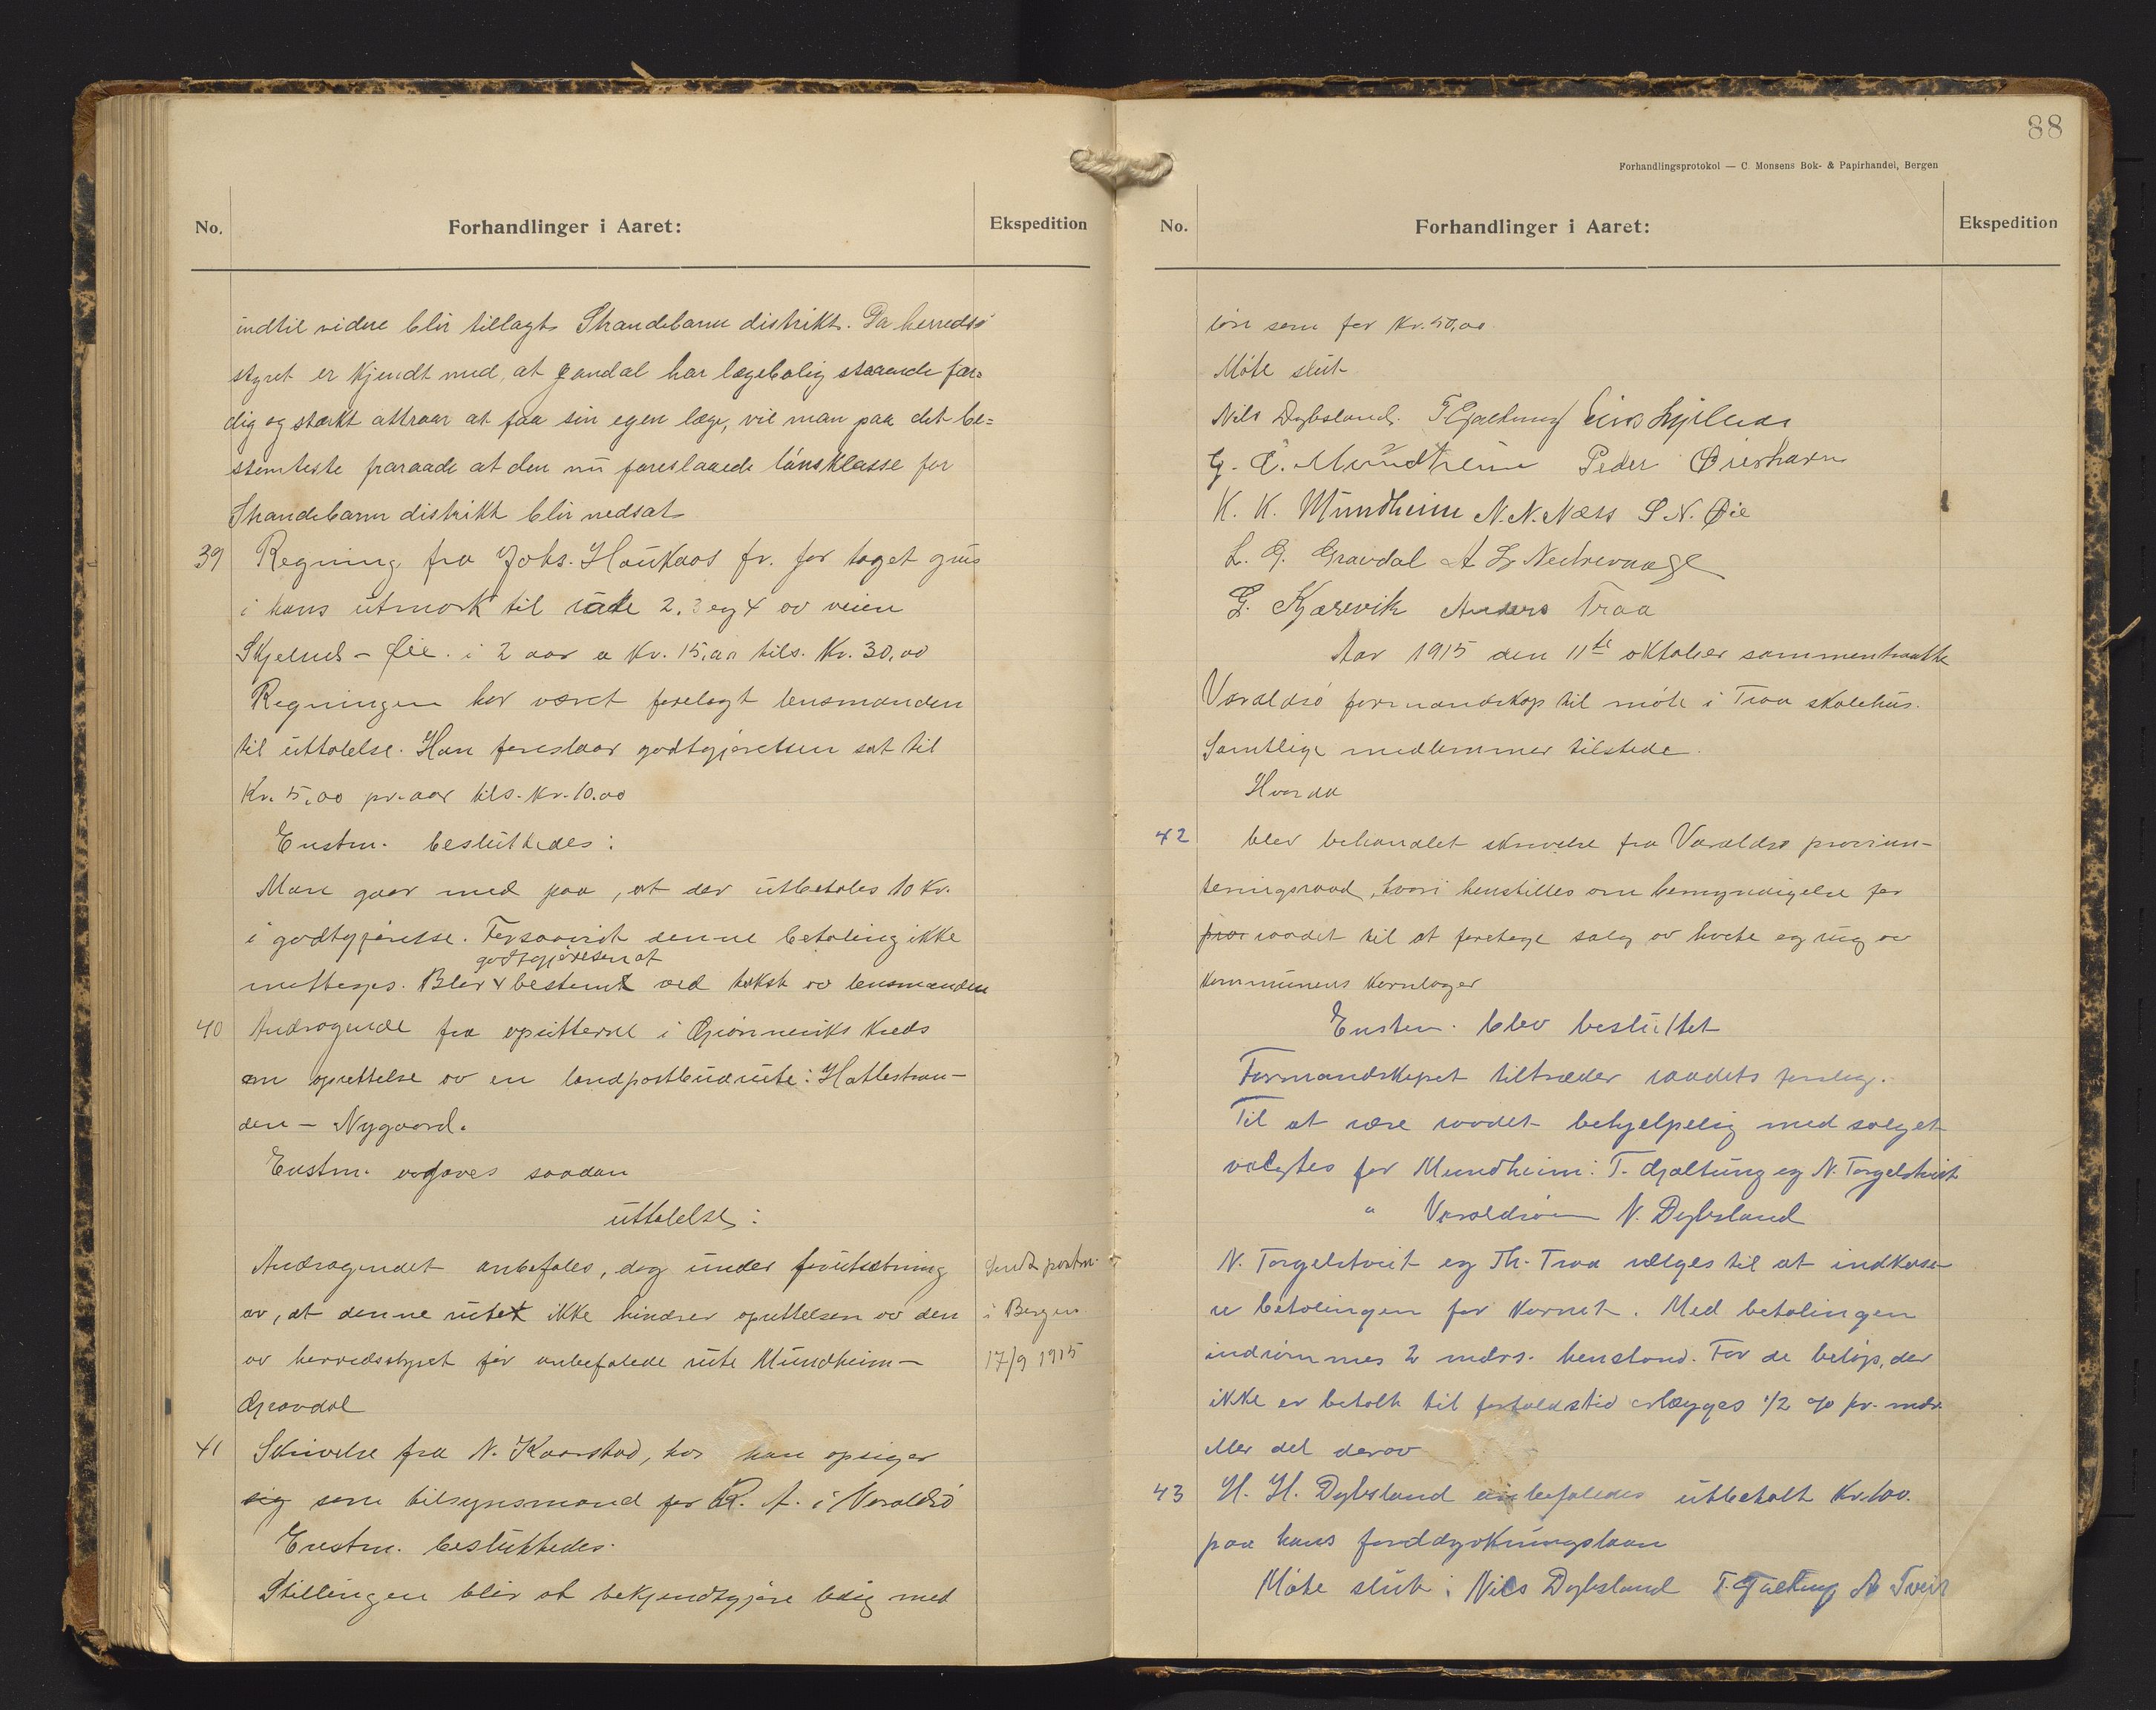 No.
Forhandlinger i Aaret:
Ekspedition
indtil videre blir tillagt Strandebarm distrikt. Da herreds
styret er kjendt med, at Jondal har lægebolig staaende fær=
dig og stærkt attraar at faa sin egen læge, vil man paa det be=
stemteste fraraade at den nu foreslaaede lönsklasse for
Strandebarm distrikt blir nedsat
39 Regning fra Johs. Haukaas fr. for taget grus
i hans utmark til rode 2. 3 og 4 av veien
Skjelnes - Øie. i 2 aar a Kr. 15,00 tils. Kr. 30,00
Regningen har været forelagt lensmanden
til uttalelse. Han foreslaar godtgjörelsen sat til
Kr. 5,00 pr. aar tils. Kr. 10.00
Enstm. besluttedes:
Man gaar med paa, at der utbetales 10 Kr.
i godtgjörelse. Forsaavidt denne betaling ikke
godtgjörelsen at
mottages. Blir bestemt ved takst av lensmanden
40 Andragende fra opsitterne i Grönneviks Kreds
om oprettelse av en landpostbudrute: Hatlestran-
den - Nygaard.
Enstm. avgaves saadan
uttalelse:
Andragendet anbefales, dog under forutsætning
av, at denne rute ikke hindrer oprettelsen av den
av herredsstyret för anbefalede rute Mundheim -
Gravdal
Sendt postm.
i Bergen
17/9 1915
41 Skrivelse fra N. Kaarstad, hor han opsiger
sig som tilsynsmand for R. A. i Varaldsö
Enstm. besluttedes.
Stillingen blir at bekjendtgjöre ledig med
88
Forhandlingsprotokol — C. Monsens Bok- & Papirhandel, Bergen
No.
Forhandlinger i Aaret:
Ekspedition
lön som för Kr. 50,00
Möte slut
Nils Dybsland. T. Gjaltung
G. E. Mundheim Peder Øierhavn
K. K. Mundheim N. N. Næss S N. Øie
L. G. Gravdal A L Nedrevaage
G. Kjærevik Anders Traa
Aar 1915 den 11te oktober sammentraatte
Varaldsö formandskap til möte i Traa skolehus.
Samtlige medlemmer tilstede.
Hvorda
42 blev behandlet skrivelse fra Varaldsö provian-
teringsraad, hvori henstilles om bemyndigelse for
raadet til at foretage salg av hvete og rug av
kommunens kornlager
Enstem. blev besluttet
Formandskapet tiltræder raadets forslag.
Til at være raadet behjelpelig med salget
valgtes for Mundheim: T. Gjaltung og N. Torgelstveit
" Varaldsöen N. Dybsland
N. Torgelstveit og Th. Traa vælges til at indkasse-
re betalingen for kornet. Med betalingen
indrömmes 2 mdrs. henstand. For de belöp, der
ikke er betalt til forfaldstid erlægges 1/2 % pr. mdr.
eller del derav
43 H. H. Dybsland anbefaledes utbetalt Kr. 100.
paa hans jorddyrkningslaan
Möte slut: Nils Dybsland T. Gjaltung A Tveit